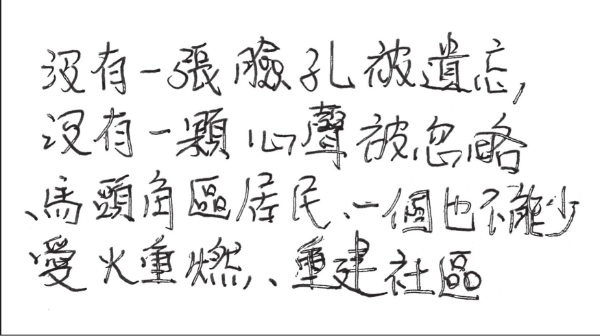 沒有一張臉孔被遺忘,
沒有一顆心聲被忽略
、馬頭角區居民、一個也不能少
愛火重燃、、重建社區